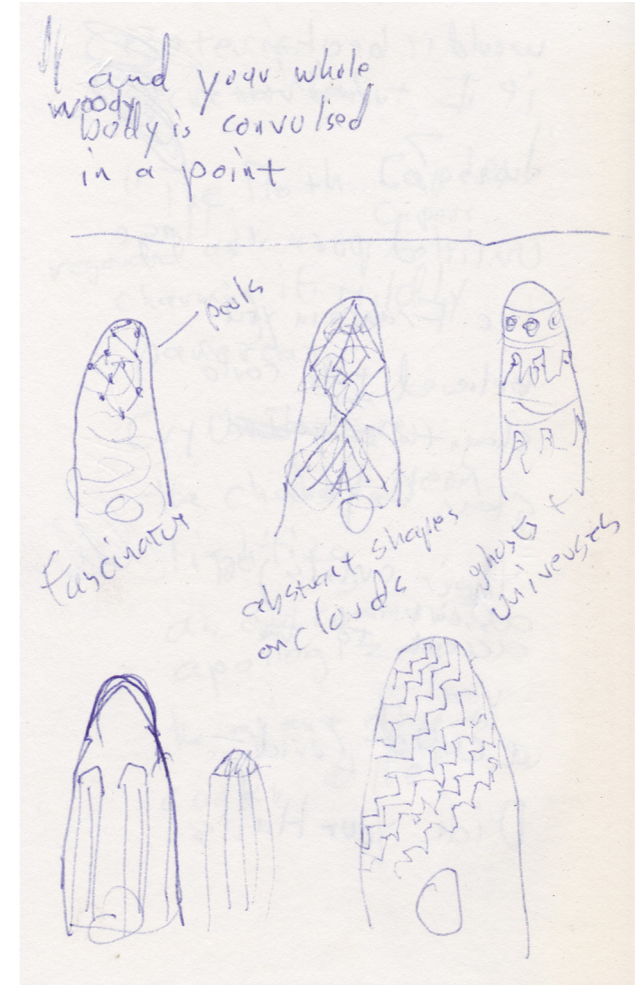 and your whole
woody
body is convulsed
in a point
pools
fascinator
abstract shapes
on clouds
ghosts +
universes